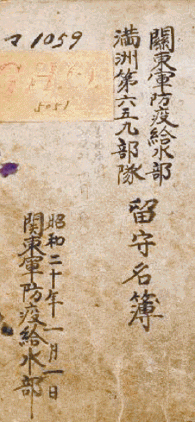 関東軍防疫給水部
満洲第六五九部隊
留守名簿
昭和二十年一月一日
関東軍防疫給水部
マ 1059
5051